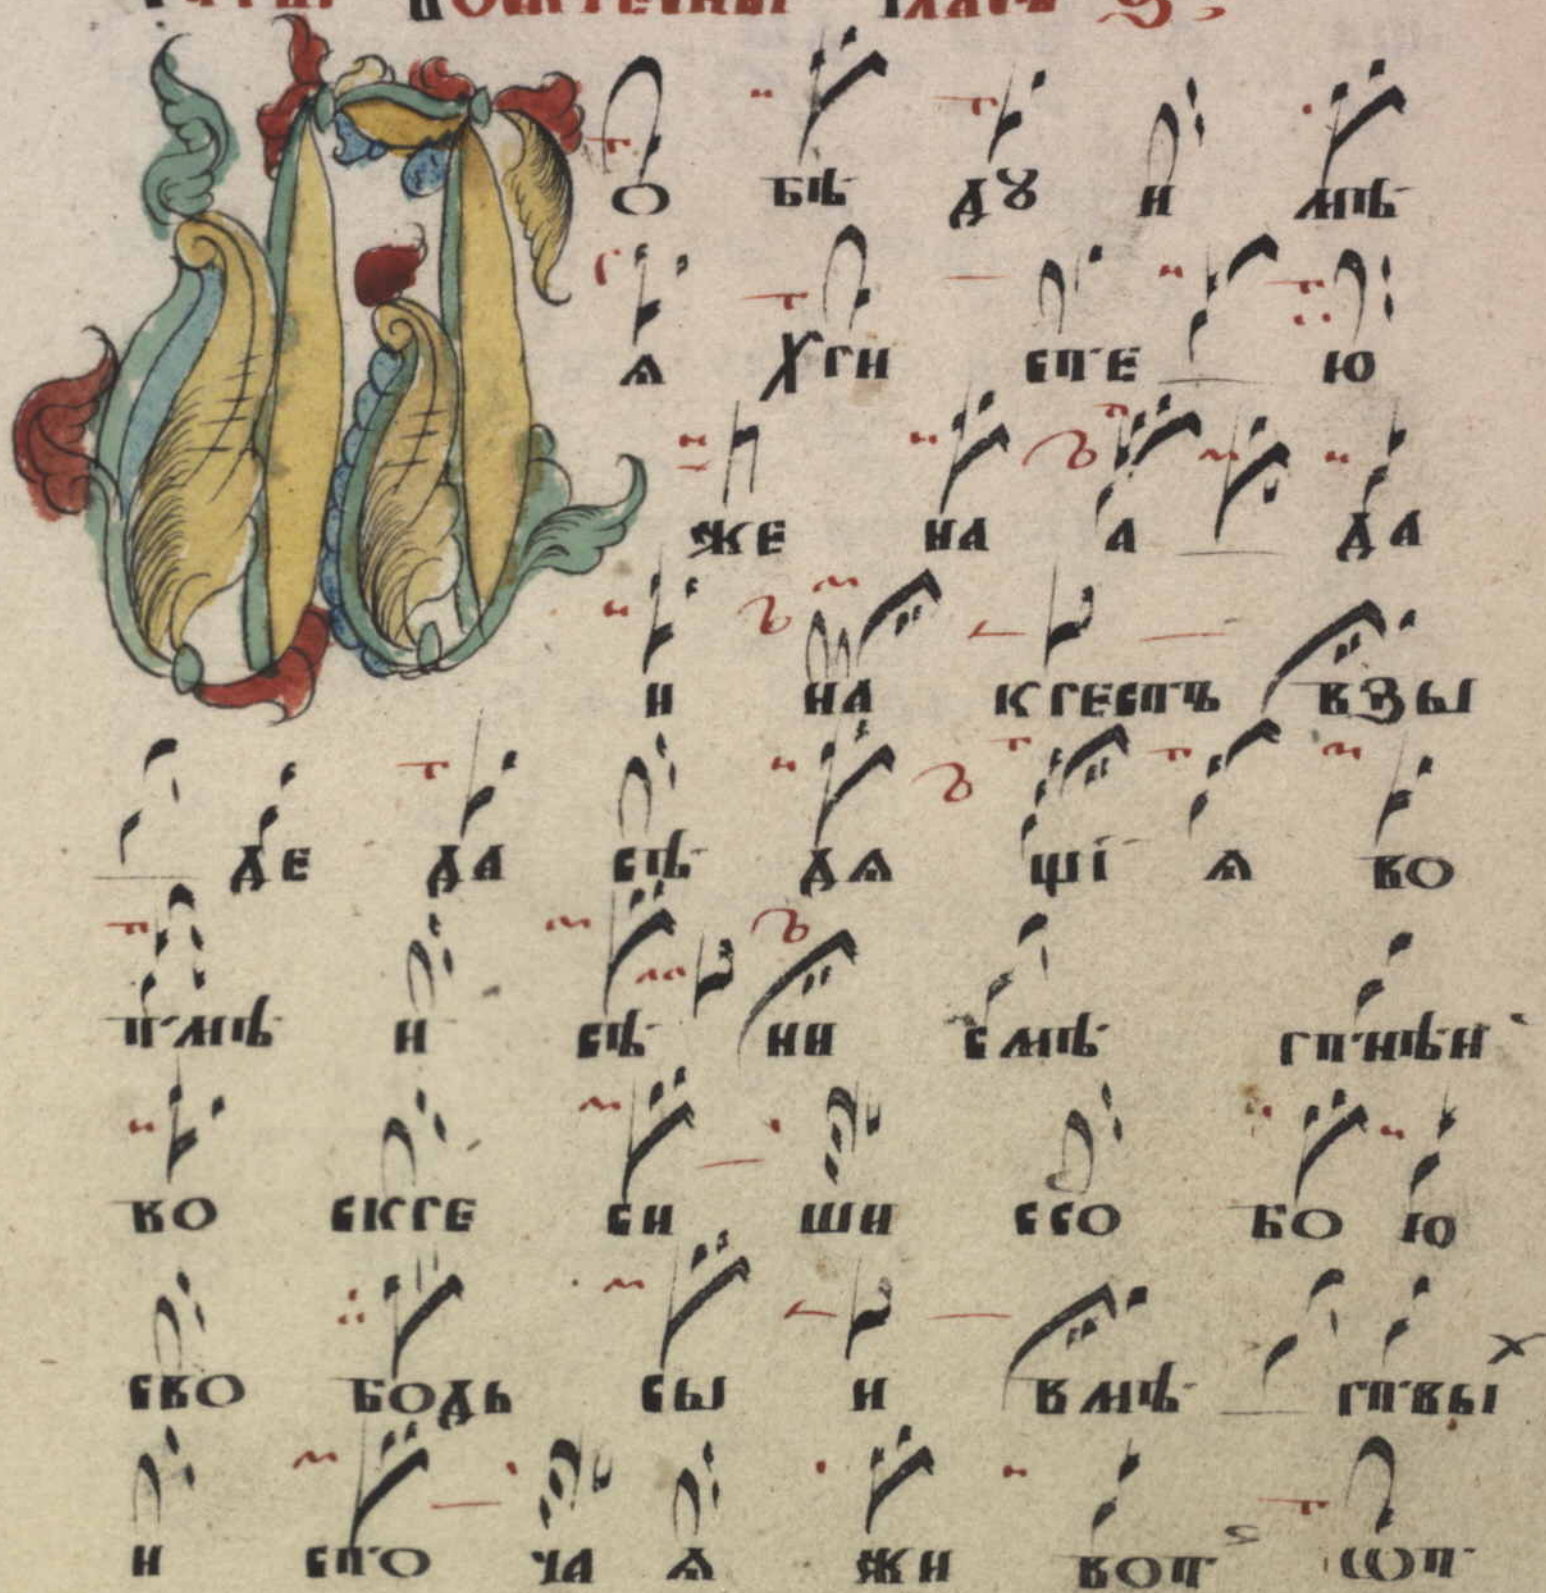 П о бѣ дꙋ и мѣ
ѧ хри сте ю
же на а да
и на крестъ взы
де да сѣ дѧ щі ѧ во
тмѣ и сѣ ни смѣ ртнѣи
во скре си ши ссо бо ю
сво бодь сы и вмѣ ртвых
и сто ча ѧ жи вот ѡт